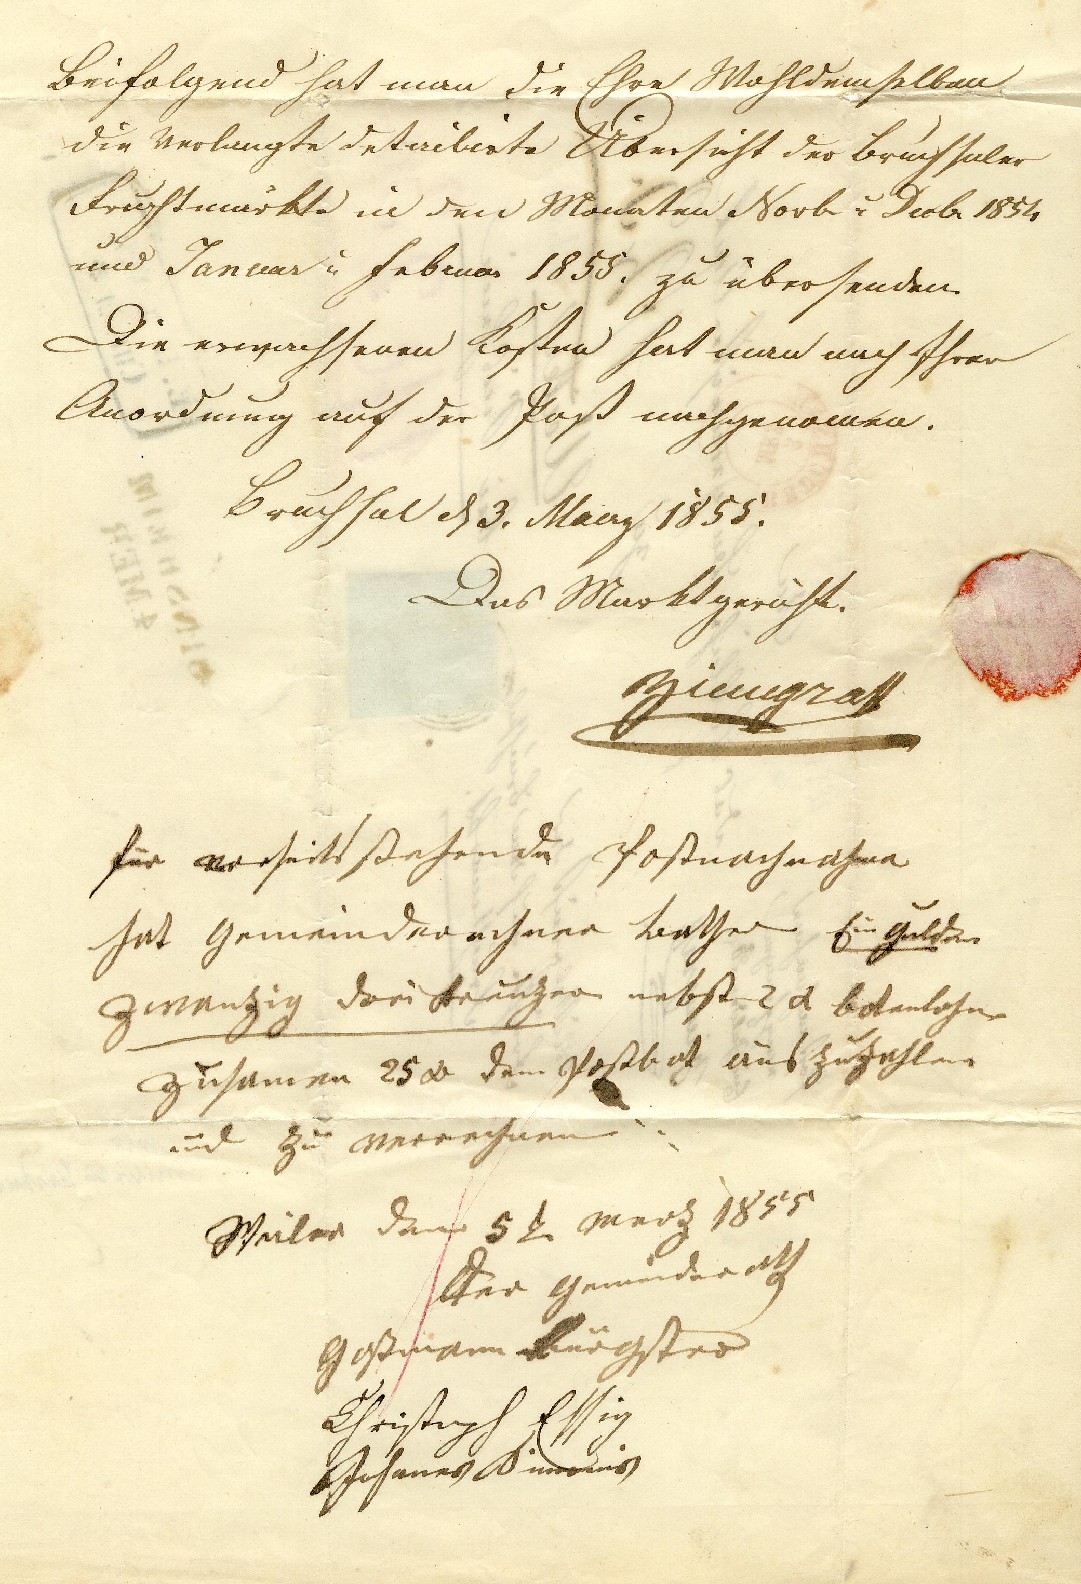 Beifolgend hat man die Ehre Wohldemselben
die verlangte detailirte Übersicht der Bruchsaler
Fruchtmärkte in den Monaten Novb. u Decb. 1854.
und Januar u Februar 1855. zu übersenden.
Die erwachsenen Kosten hat man nach Ihrer
Anordnung auf der Post nachgenomen.
Bruchsal d 3. März 1855.
Das Marktgericht.
Ziemgraff
für vorseits stehende Postnachnahme
hat Gemeinderechner Ein Gulden
zwanzig drei Kreuzer nebst 2 botenlohn
zusamen 25 dem Postbot aus zuzahlen
und zu verrechnen
Weiler den 5t Mertz 1855
Der Gemeinderath
Gostmann Bürgster
Christoph Essig
Johannes
MER